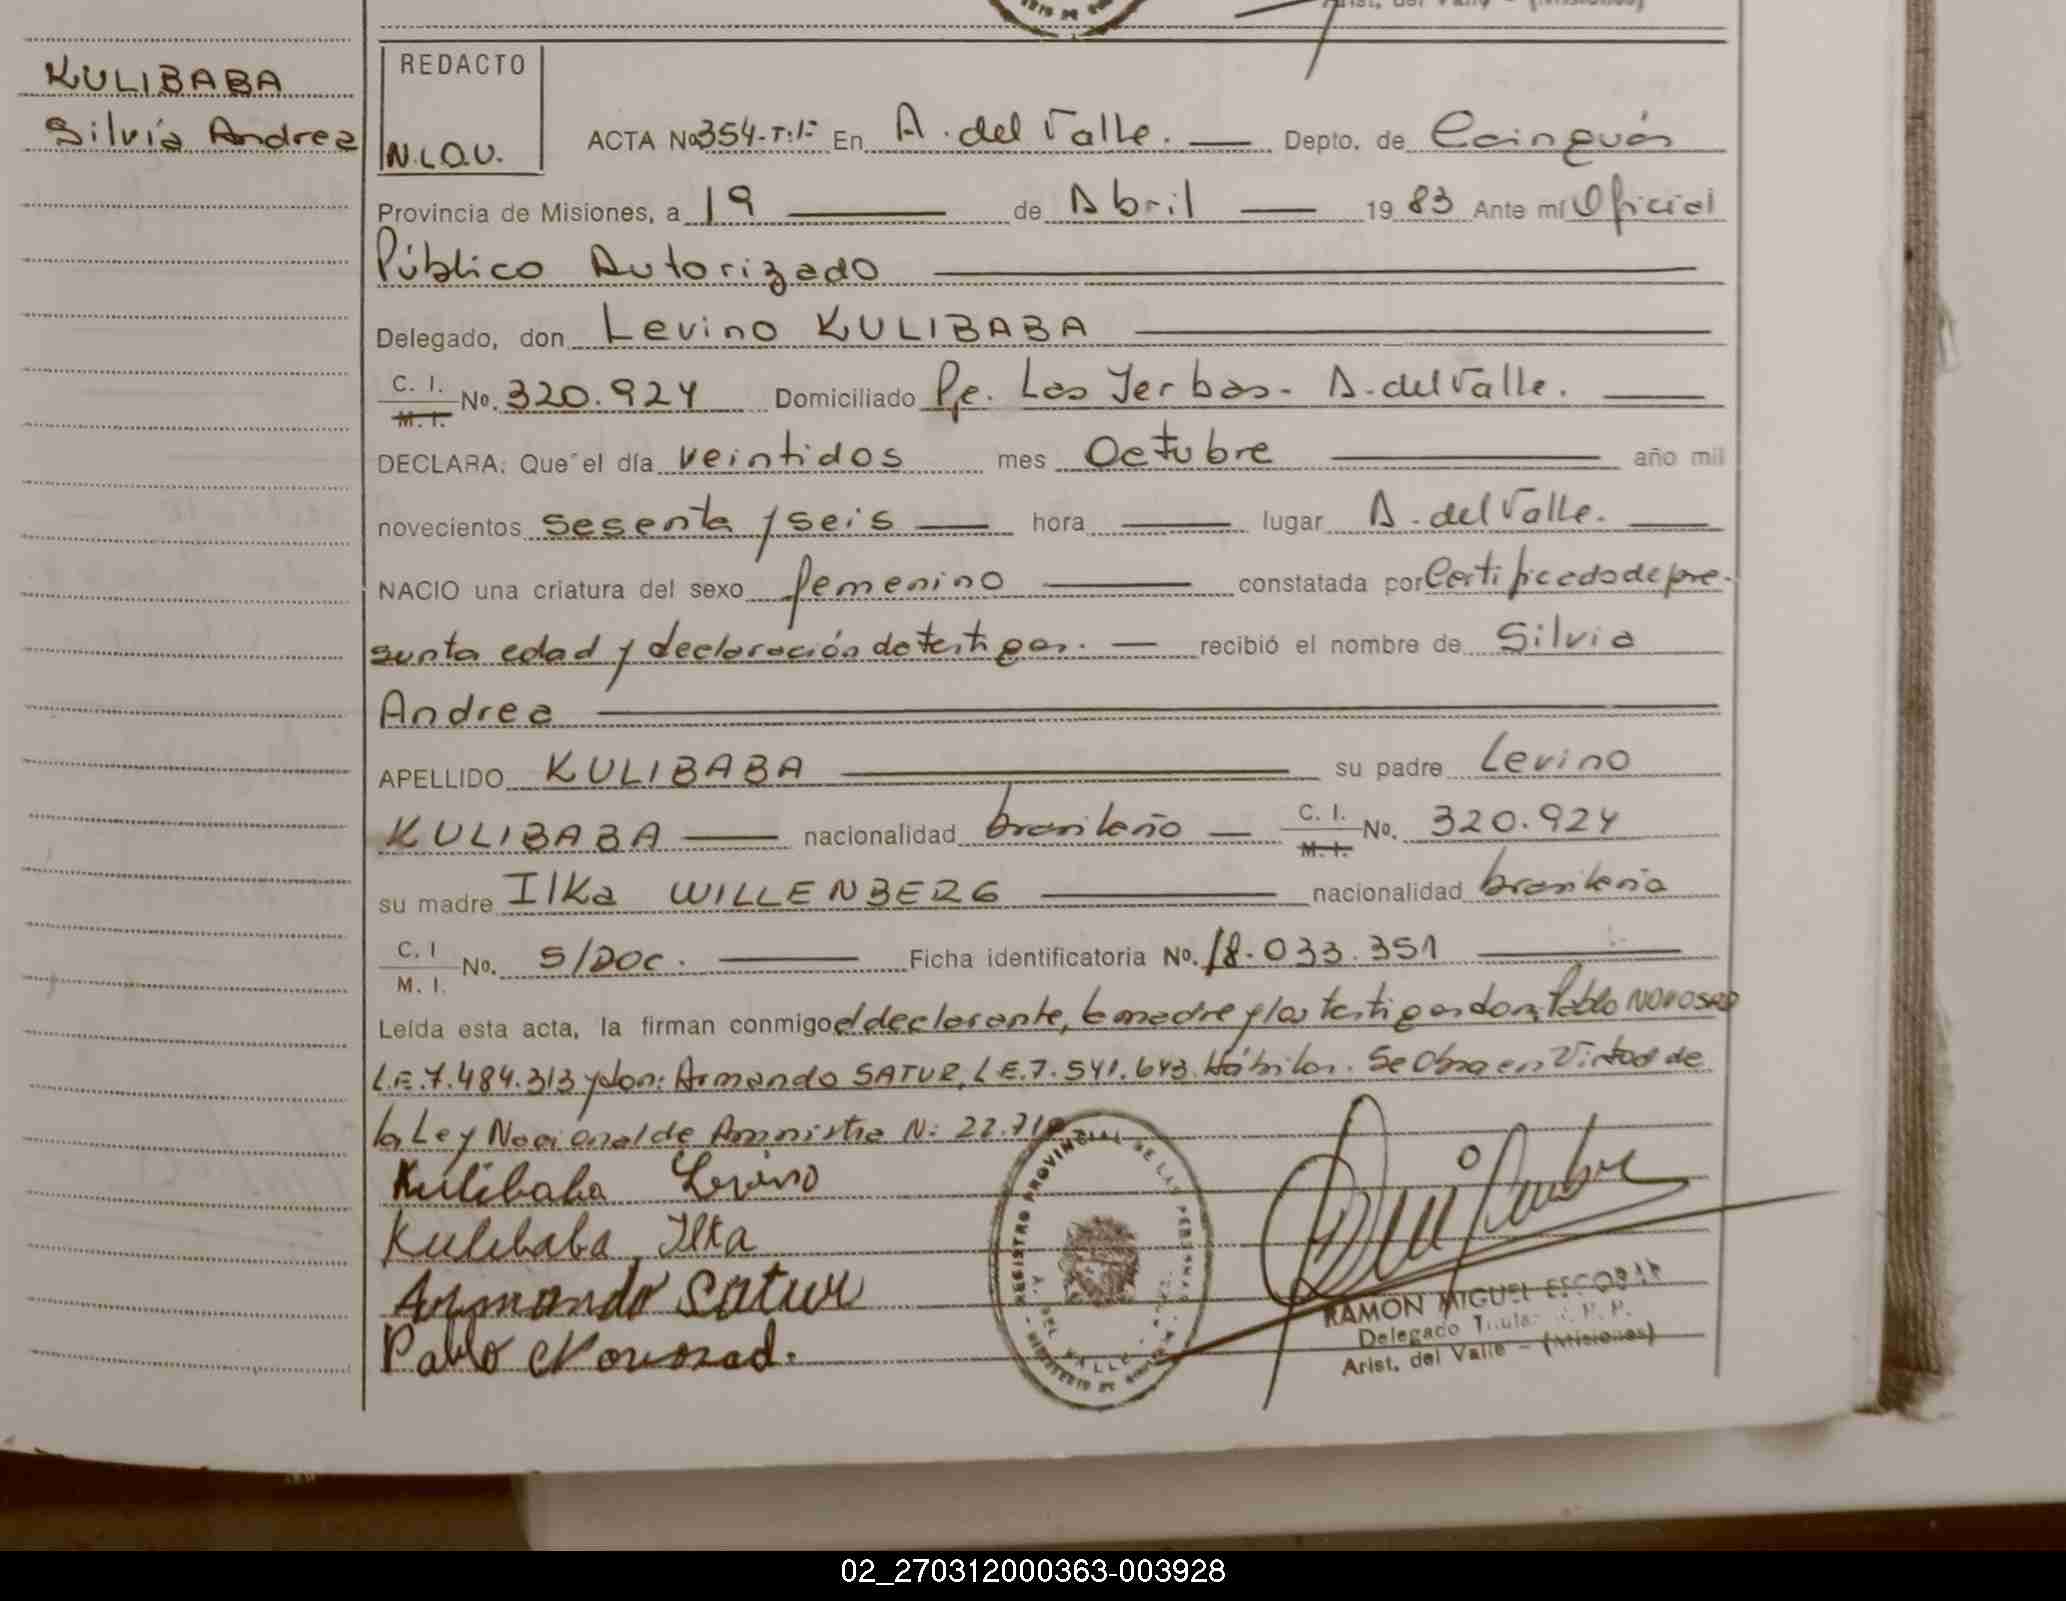 KULIBABA
Silvia Andrea
REDACTO
N.L.O.V.
ACTA No 354-T:1: En A. del Valle. Depto. de Cainguás
Provincia de Misiones, a 19 de Abril 1983 Ante mí Oficial
Público Autorizado
Delegado, don Levino KULIBABA
C. I. M. I. No. 320.924 Domiciliado Pje. Las Yerbas - A. del Valle.
DECLARA: Que el día veintidos mes Octubre año mil
novecientos sesenta y seis hora lugar A. del Valle.
NACIO una criatura del sexo femenino constatada por Certificado de pre-
sunta edad y declaración de testigos. recibió el nombre de Silvia
Andrea
APELLIDO KULIBABA su padre Levino
KULIBABA nacionalidad brasileño C. I. M. I. No. 320.924
su madre Ilka WILLENBERG nacionalidad brasileña
C. I M. I. No. S/DOC. Ficha identificatoria No. 18.033.351
Leída esta acta, la firman conmigo el declarante, la madre y los testigos don, Pablo NOVOSAD
L.E.7.484.313 y don: Armando SATUR, L.E.7.541.643. Hábiles. Se Obra en Virtud de
la Ley Nacional de Amnistia N:
Kulibaba Levino
Kulibaba Ilka
Armando Satur
Pablo Novosad.
REGISTRO PROVINCIAL DE LAS PERSONAS
A. DEL VALLE
RAMON MIGUEL ESCOBAR
Delegado Titular
Arist. del Valle - (Misiones)
02_270312000363-003928